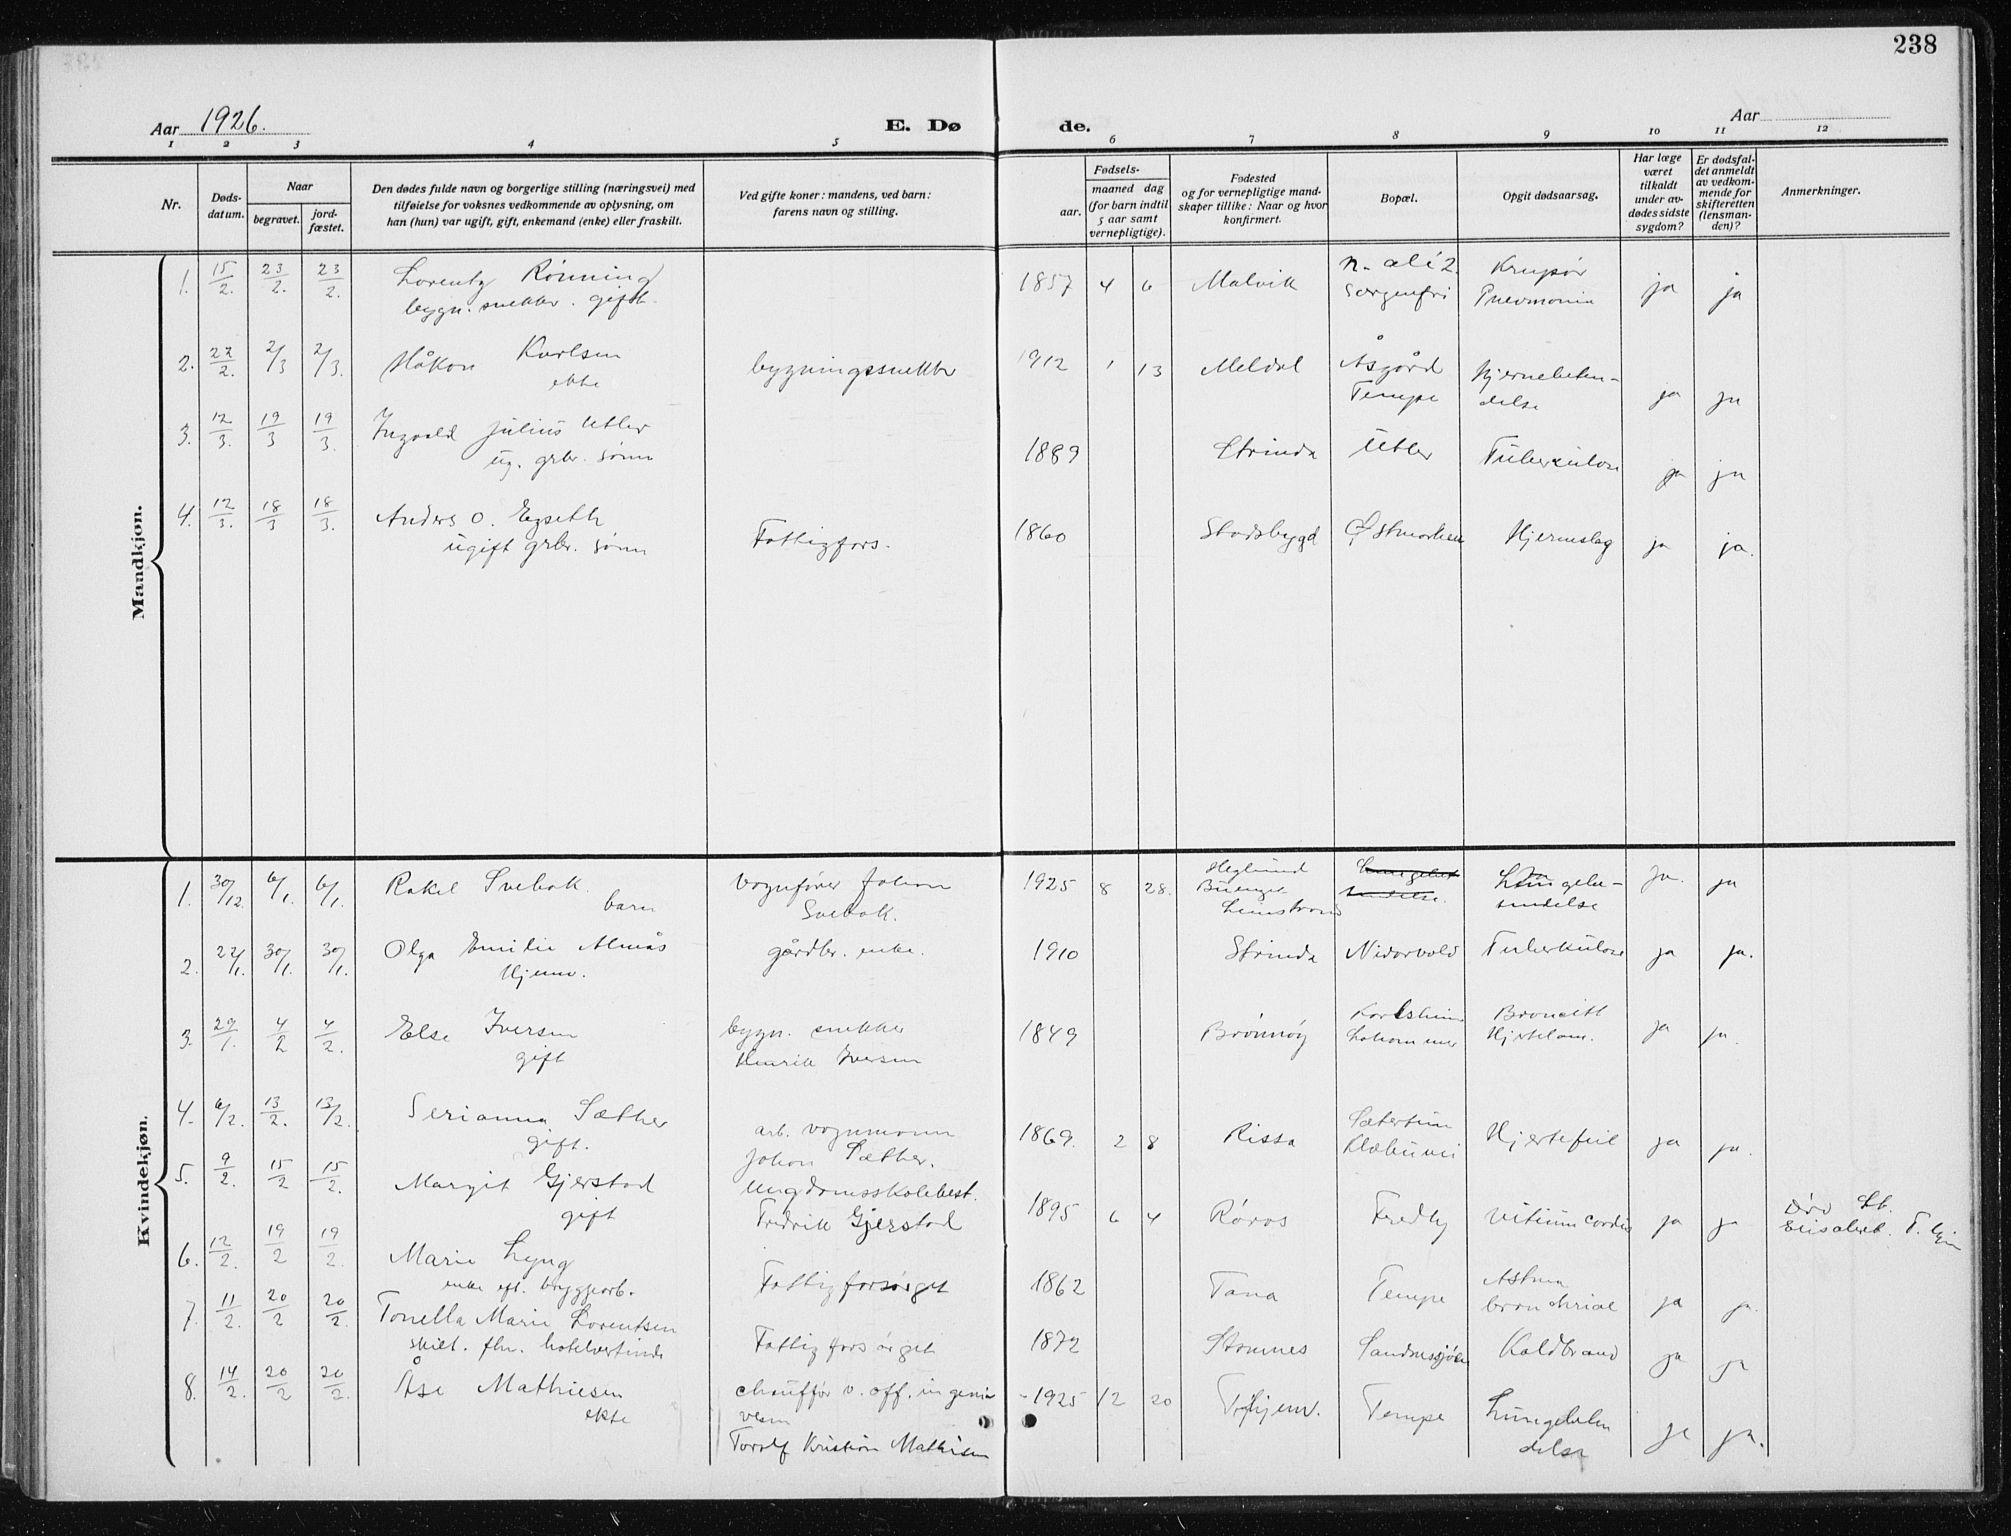 238
Aar 1926.
E. Dø
de.
Aar
1 2 3 4 5 6 7 8 9 10 11 12
Nr.
Døds-
datum.
Naar
begravet.
jord-
fæstet.
Den dødes fulde navn og borgerlige stilling (næringsvei) med
tilføielse for voksnes vedkommende av oplysning, om
han (hun) var ugift, gift, enkemand (enke) eller fraskilt.
Ved gifte koner: mandens, ved barn:
farens navn og stilling.
Fødsels-
aar.
maaned dag
(for barn indtil
5 aar samt
vernepligtige).
Fødested
og for vernepligtige mand-
skaper tillike: Naar og hvor
konfirmert.
Bopæl.
Opgit dødsaarsag.
Har læge
været
tilkaldt
under av-
dødes sidste
sygdom?
Er dødsfal-
det anmeldt
av vedkom-
mende for
skifteretten
(lensman-
den)?
Anmerkninger.
Maadkjøn.
1. 15/2. 23/2. 23/2. Lorentz Rönning 1857 4 6 Malvik n. alé 2. Krupös ja ja
bygn. snekker. gift. Sorgenfri Pnevmonia
2. 22/2. 2/3 2/3. Håkon Karlsen bygningssnekker 1912 1 13 Meldal Åsgård Hjernebeten-
ekte Tempe delse ja ja
3. 12/3. 19/3 19/3 Ingvald Julius Utler 1889 Strinda Utler Tuberkulose ja ja
ug. grbr. sønn
4. 12/3. 18/3 18/3. Anders O. Egseth Fattigfors. 1860 Stadsbygd Östmarken Hjerneslag ja ja.
ugift grbr. sønn
Kvindekjøn.
1. 30/12. 6/1. 6/1. Rakel Svebak vognfører Johan 1925 8 28. Lungebe- ja. ja
barn Svebak.
2. 22/1. 30/1. 30/1. Olga Emilie Almås gårdbr. enke. 1910 Strinda Nidarvold Tuberkulose ja ja.
Hjem.
3. 29/1. 4/2 4/2. Else Iversen bygn. snekker 1849 Brönnöy ja ja.
gift Henrik Iversen
4. 6/2. 13/2. 13/2. Serianna Sæther arb. vognmann 1869. 2 8 Rissa Sætertun Hjertefeil ja ja.
gift. Johan Sæther. Klæbuvei
5. 9/2. 15/2 15/2. Margit Gjerstad Ungdomsskolebest. 1895 6 4 Röros Fredly vitium cordis ja ja Död St.
gift Fredrik Gjerstad Elisabet. T.hjem
6. 12/2. 19/2 19/2. Marie Lyng Fattigforsørget 1862 Tana Tempe Astma
enke eft. bryggearb. bronchiale ja ja.
7. 11/2. 20/2 20/2. Tonella Marie Lorentsen Fattigforsørget 1872 Stamnes Sandnessjöen Koldbrand ja ja
skilt. fhv. hotelvertinde
8. 14/2. 20/2 20/2. Åse Mathiesen chauffør v. off. ingeniør 1925 12 20 T.hjem. Tempe Lungebeten
ekte vesen delse ja ja.
Toralf Kristian Mathisen